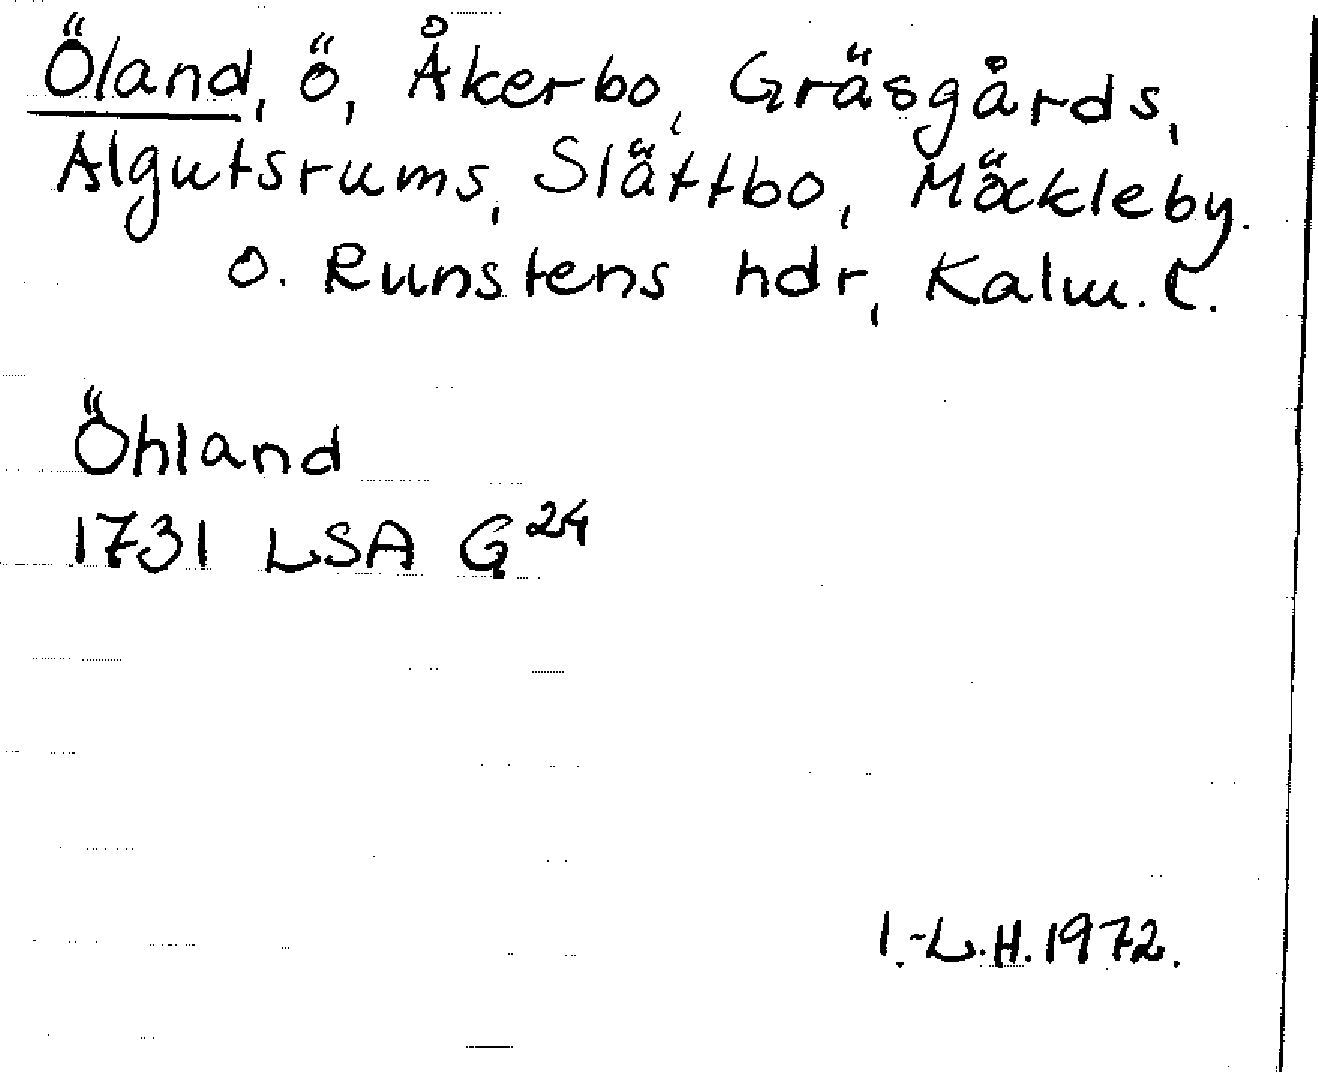 Öland, ö, Åkerbo, Gräsgårds,
Algutsrums, Slättbo, Möckleby.
o. Runstens hdr, Kalm. l.
Öhland
1731 LSA G 24
I.-L.H. 1972.